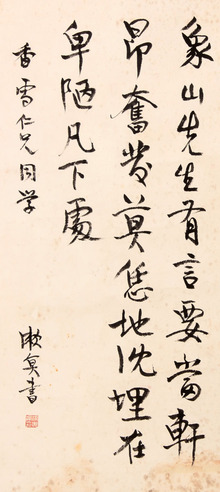 象山先生有言要当軒
昂奮發莫恁地沈埋在
卑陋凡下處
香雪仁兄同学
漱冥書